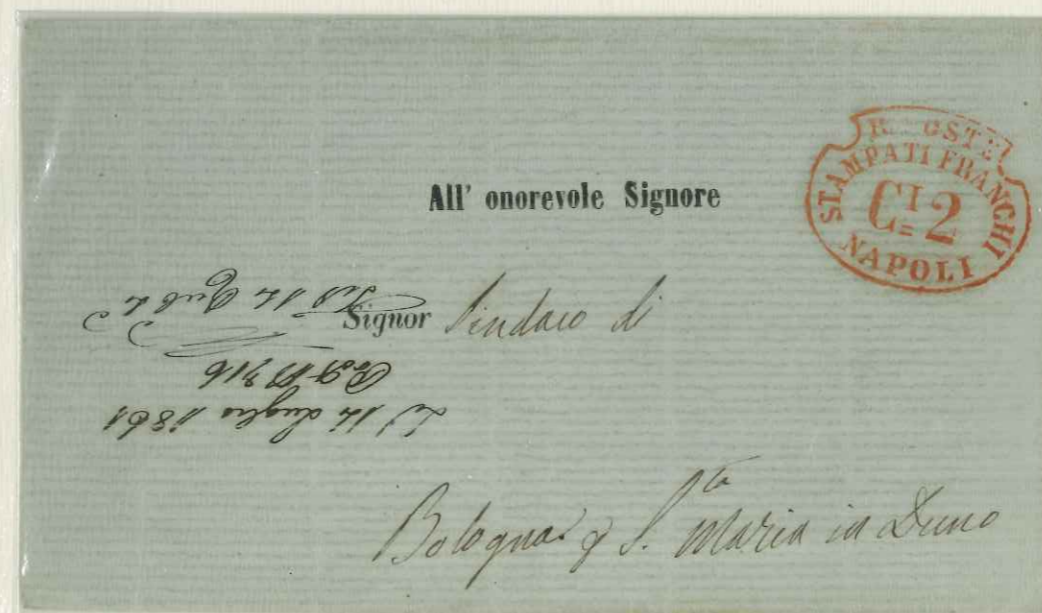 R. POSTE
STAMPATI FRANCHI
C.I 2
NAPOLI
All' onorevole Signore
Signor Sindaco di
Bologna p S.ta Maria in Duno
Li 14 Luglio 1861
316
14